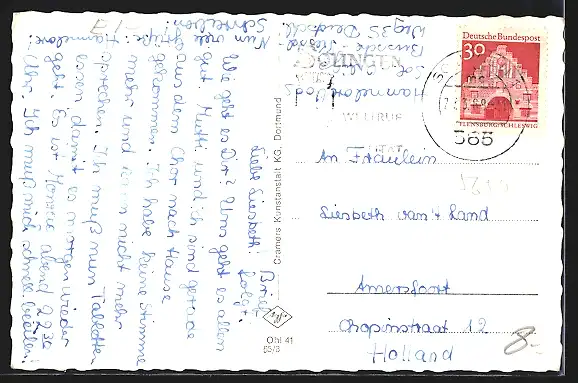 Liebe Liesbeth! Brief folgt.
Wie geht es Dir? Uns geht es allen
gut. Mutti und ich sind gerade
aus dem Chor nach Hause
gekommen. Ich habe keine Stimme
mehr und kann nicht mehr
sprechen. Ich muß nun Tabletten
essen damit es morgen wieder
geht. Es ist Montag abend 22 30
Uhr. Ich muß mich schnell beeilen!
Nun viele Grüße Hannelore
Schreiben
Hannelore
565
Deutsche Bundespost
30
FLENSBURG/SCHLESWIG
SOLINGEN
WELTRUF
565
Cramers Kunstanstalt KG, Dortmund
An Fräulein
Liesbeth van't Land
Amersfoort
Chopinstraat 12
Holland
8-
Ohl 41
65/8